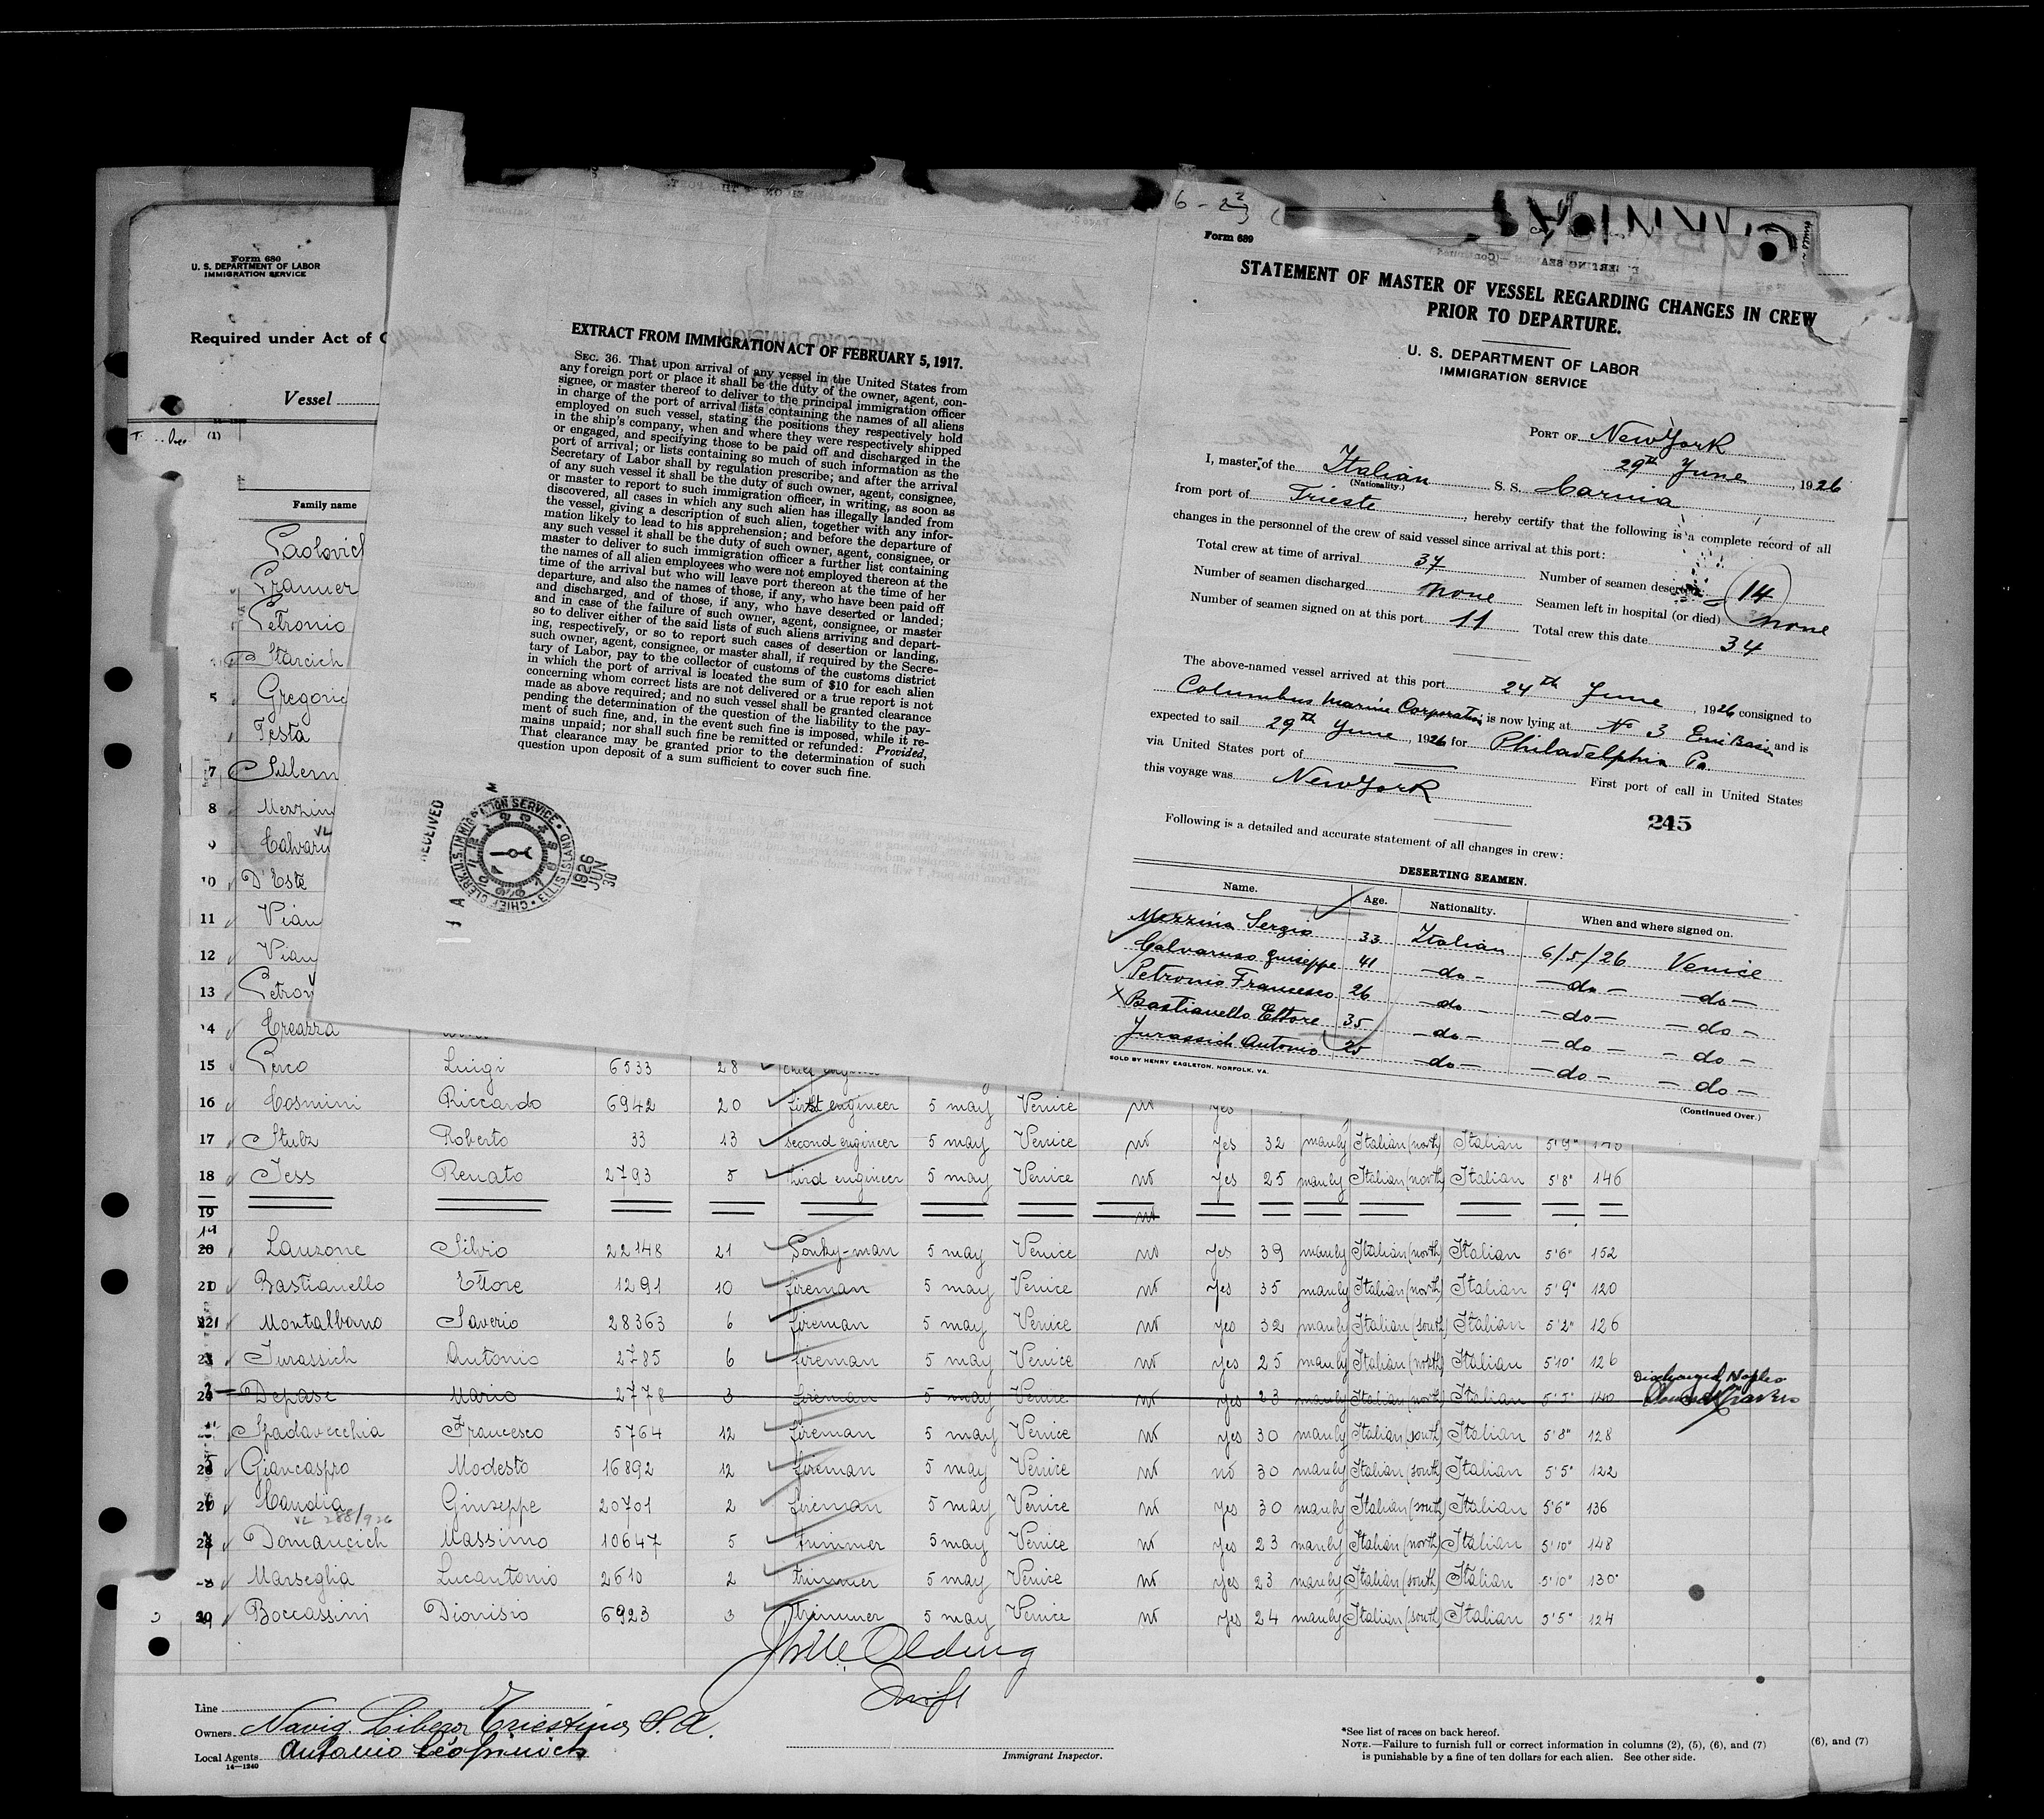 Form 680
U. S. DEPARTMENT OF LABOR
IMMIGRATION SERVICE
Required under Act of
Vessel
(1)
Family name
Paolovich
Cramer
Petronio
Starcich
5 Gregoric
Testa
7
8 Mezzin
9 Calvaru
10 D'Este
11 Vian
12 Vian
13 Petron
14 Creazza
EXTRACT FROM IMMIGRATION ACT OF FEBRUARY 5, 1917.
SEC. 36. That upon arrival of any vessel in the United States from
any foreign port or place it shall be the duty of the owner, agent, con-
signee, or master thereof to deliver to the principal immigration officer
in charge of the port of arrival lists containing the names of all aliens
employed on such vessel, stating the positions they respectively hold
in the ship's company, when and where they were respectively shipped
or engaged, and specifying those to be paid off and discharged in the
port of arrival; or lists containing so much of such information as the
Secretary of Labor shall by regulation prescribe; and after the arrival
of any such vessel it shall be the duty of such owner, agent, consignee,
or master to report to such immigration officer, in writing, as soon as
discovered, all cases in which any such alien has illegally landed from
the vessel, giving a description of such alien, together with any infor-
mation likely to lead to his apprehension; and before the departure of
any such vessel it shall be the duty of such owner, agent, consignee, or
master to deliver to such immigration officer a further list containing
the names of all alien employees who were not employed thereon at the
time of the arrival but who will leave port thereon at the time of her
departure, and also the names of those, if any, who have been paid off
and discharged, and of those, if any, who have deserted or landed;
and in case of the failure of such owner, agent, consignee, or master
so to deliver either of the said lists of such aliens arriving and depart-
ing, respectively, or so to report such cases of desertion or landing,
such owner, agent, consignee, or master shall, if required by the Secre-
tary of Labor, pay to the collector of customs of the customs district
in which the port of arrival is located the sum of $10 for each alien
concerning whom correct lists are not delivered or a true report is not
made as above required; and no such vessel shall be granted clearance
pending the determination of the question of the liability to the pay-
ment of such fine, and, in the event such fine is imposed, while it re-
mains unpaid; nor shall such fine be remitted or refunded: Provided,
That clearance may be granted prior to the determination of such
question upon deposit of a sum sufficient to cover such fine.
RECEIVED
CHIEF CLERK, U.S. IMMIGRATION SERVICE · ELLIS ISLAND
1926 JUN 30
Form 689
STATEMENT OF MASTER OF VESSEL REGARDING CHANGES IN CREW
PRIOR TO DEPARTURE.
U. S. DEPARTMENT OF LABOR
IMMIGRATION SERVICE
PORT OF New York
29th June, 1926
I, master of the Italian S. S. Carnia
(Nationality.)
from port of Trieste, hereby certify that the following is a complete record of all
changes in the personnel of the crew of said vessel since arrival at this port:
Total crew at time of arrival 37 Number of seamen deserted 14
Number of seamen discharged None Seamen left in hospital (or died) none
Number of seamen signed on at this port 11 Total crew this date 34
The above-named vessel arrived at this port 24th June, 1926 consigned to
Columbus Marine Corporation is now lying at No 3 Erie Basin and is
expected to sail 29th June, 1926 for Philadelphia Pa.
via United States port of — First port of call in United States
this voyage was New York
245
Following is a detailed and accurate statement of all changes in crew:
DESERTING SEAMEN.
Name. Age. Nationality. When and where signed on.
Mezzina Sergio 33 Italian 6/5/26 Venice
Calvaruso Giuseppe 41 —do— —do— —do—
Petronio Francesco 26 —do— —do— —do—
Bastianello Ettore 35 —do— —do— —do—
Jurassich Antonio 25 —do— —do— —do—
SOLD BY HENRY EAGLETON, NORFOLK, VA.
(Continued Over.)
15 Perco Luigi 6533 28 chief engineer
16 Cosmini Riccardo 6942 20 first engineer 5 may Venice no yes
17 Stubz Roberto 33 13 second engineer 5 may Venice no yes 32 manly Italian (north) Italian 5'9"
18 Jess Renato 2793 5 third engineer 5 may Venice no yes 25 manly Italian (north) Italian 5'8" 146
19 no
20 Lauzone Silvio 22148 21 Donky-man 5 may Venice no yes 39 manly Italian (north) Italian 5'6" 152
21 Bastianello Ettore 1291 10 fireman 5 may Venice no yes 35 manly Italian (north) Italian 5'9" 120
22 Montalbano Saverio 28363 6 fireman 5 may Venice no yes 32 manly Italian (south) Italian 5'2" 126
23 Jurassich Antonio 2785 6 fireman 5 may Venice no yes 25 manly Italian (north) Italian 5'10" 126
24 Depase Mario 2778 3 fireman 5 may Venice no yes 23 manly Italian (north) Italian 5'5" 140 Discharged Naples
Spadavecchia Francesco 5764 12 fireman 5 may Venice no yes 30 manly Italian (south) Italian 5'8" 128
26 Giancaspro Modesto 16892 12 fireman 5 may Venice no no 30 manly Italian (south) Italian 5'5" 122
27 Candia Giuseppe 20701 2 fireman 5 may Venice no yes 30 manly Italian (south) Italian 5'6" 136
VL 288/926
28 Domancich Massimo 10647 5 trimmer 5 may Venice no yes 23 manly Italian (north) Italian 5'10" 148
Marseglia Lucantonio 2610 2 trimmer 5 may Venice no yes 23 manly Italian (south) Italian 5'10" 130
30 Boccassini Dionisio 6923 3 trimmer 5 may Venice no yes 24 manly Italian (south) Italian 5'5" 124
Line
Owners Navig. Libera Triestina S. A.
Local Agents Antonio Cosulich
14—1240
Immigrant Inspector.
*See list of races on back hereof.
NOTE.—Failure to furnish full or correct information in columns (2), (5), (6), and (7)
is punishable by a fine of ten dollars for each alien. See other side.
(6), and (7)